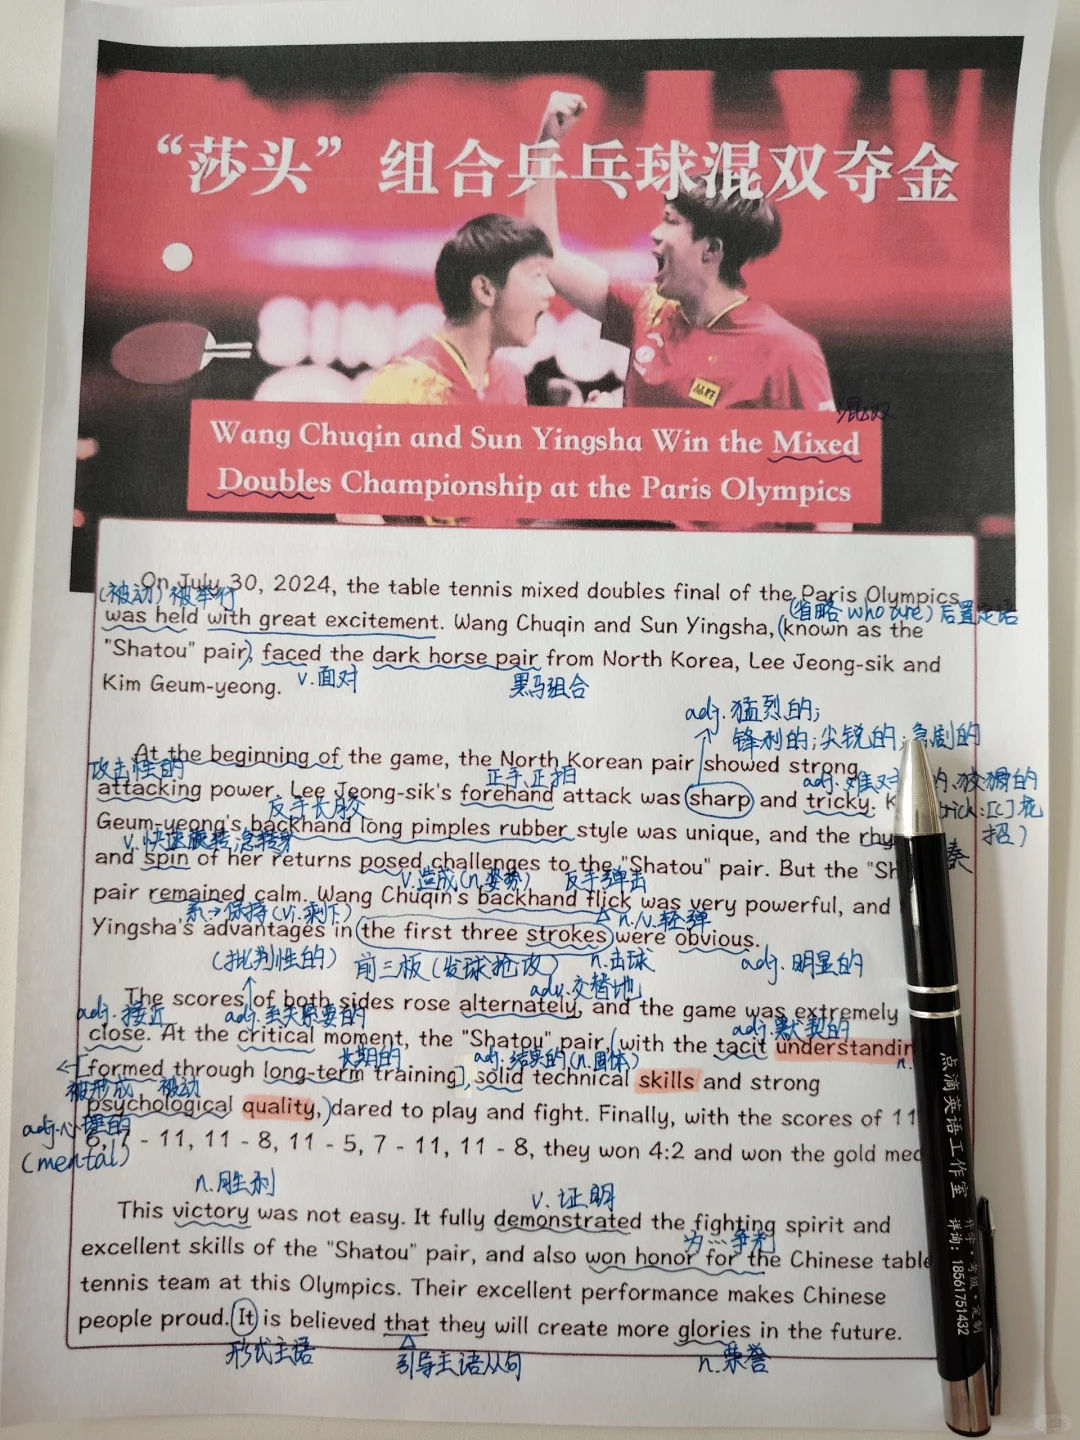 “莎头”组合乒乓球混双夺金
品胜
混双
Wang Chuqin and Sun Yingsha Win the Mixed
Doubles Championship at the Paris Olympics
On July 30, 2024, the table tennis mixed doubles final of the Paris Olympics
(被动)被举行
(省略 who are) 后置定语
was held with great excitement. Wang Chuqin and Sun Yingsha, (known as the
"Shatou" pair), faced the dark horse pair from North Korea, Lee Jeong-sik and
v.面对
黑马组合
Kim Geum-yeong.
adj.猛烈的;
锋利的;尖锐的;急剧的
At the beginning of the game, the North Korean pair showed strong
攻击性的
正手,正拍
adj.难对 的,狡猾的
attacking power. Lee Jeong-sik's forehand attack was sharp and tricky.
反手长胶
招)
Geum-yeong's backhand long pimples rubber style was unique, and the
v.快速旋转,急转身
奏
and spin of her returns posed challenges to the "Shatou" pair. But the
v.造成(n.姿势)
反手弹击
pair remained calm. Wang Chuqin's backhand flick was very powerful, and
系→保持(vi.剩下)
n./v.轻弹
Yingsha's advantages in (the first three strokes) were obvious.
(批判性的)
前三板(发球抢攻)
n.击球
adj.明显的
adv.交替地
The scores of both sides rose alternately, and the game was extremely
adj.接近
adj.至关重要的
adj.默契的
close. At the critical moment, the "Shatou" pair, (with the tacit understandin
长期的
adj.结实的(n.固体)
n.
[formed through long-term training], solid technical skills and strong
被形成 被动
psychological quality,) dared to play and fight. Finally, with the scores of 11
adj.心理的
6, 7 - 11, 11 - 8, 11 - 5, 7 - 11, 11 - 8, they won 4:2 and won the gold med
(mental)
n.胜利
v.证明
This victory was not easy. It fully demonstrated the fighting spirit and
为…争利
excellent skills of the "Shatou" pair, and also won honor for the Chinese table
tennis team at this Olympics. Their excellent performance makes Chinese
people proud. It is believed that they will create more glories in the future.
形式主语
引导主语从句
n.荣誉
点滴英语工作室
升学·考级·定制
详询:18561751432